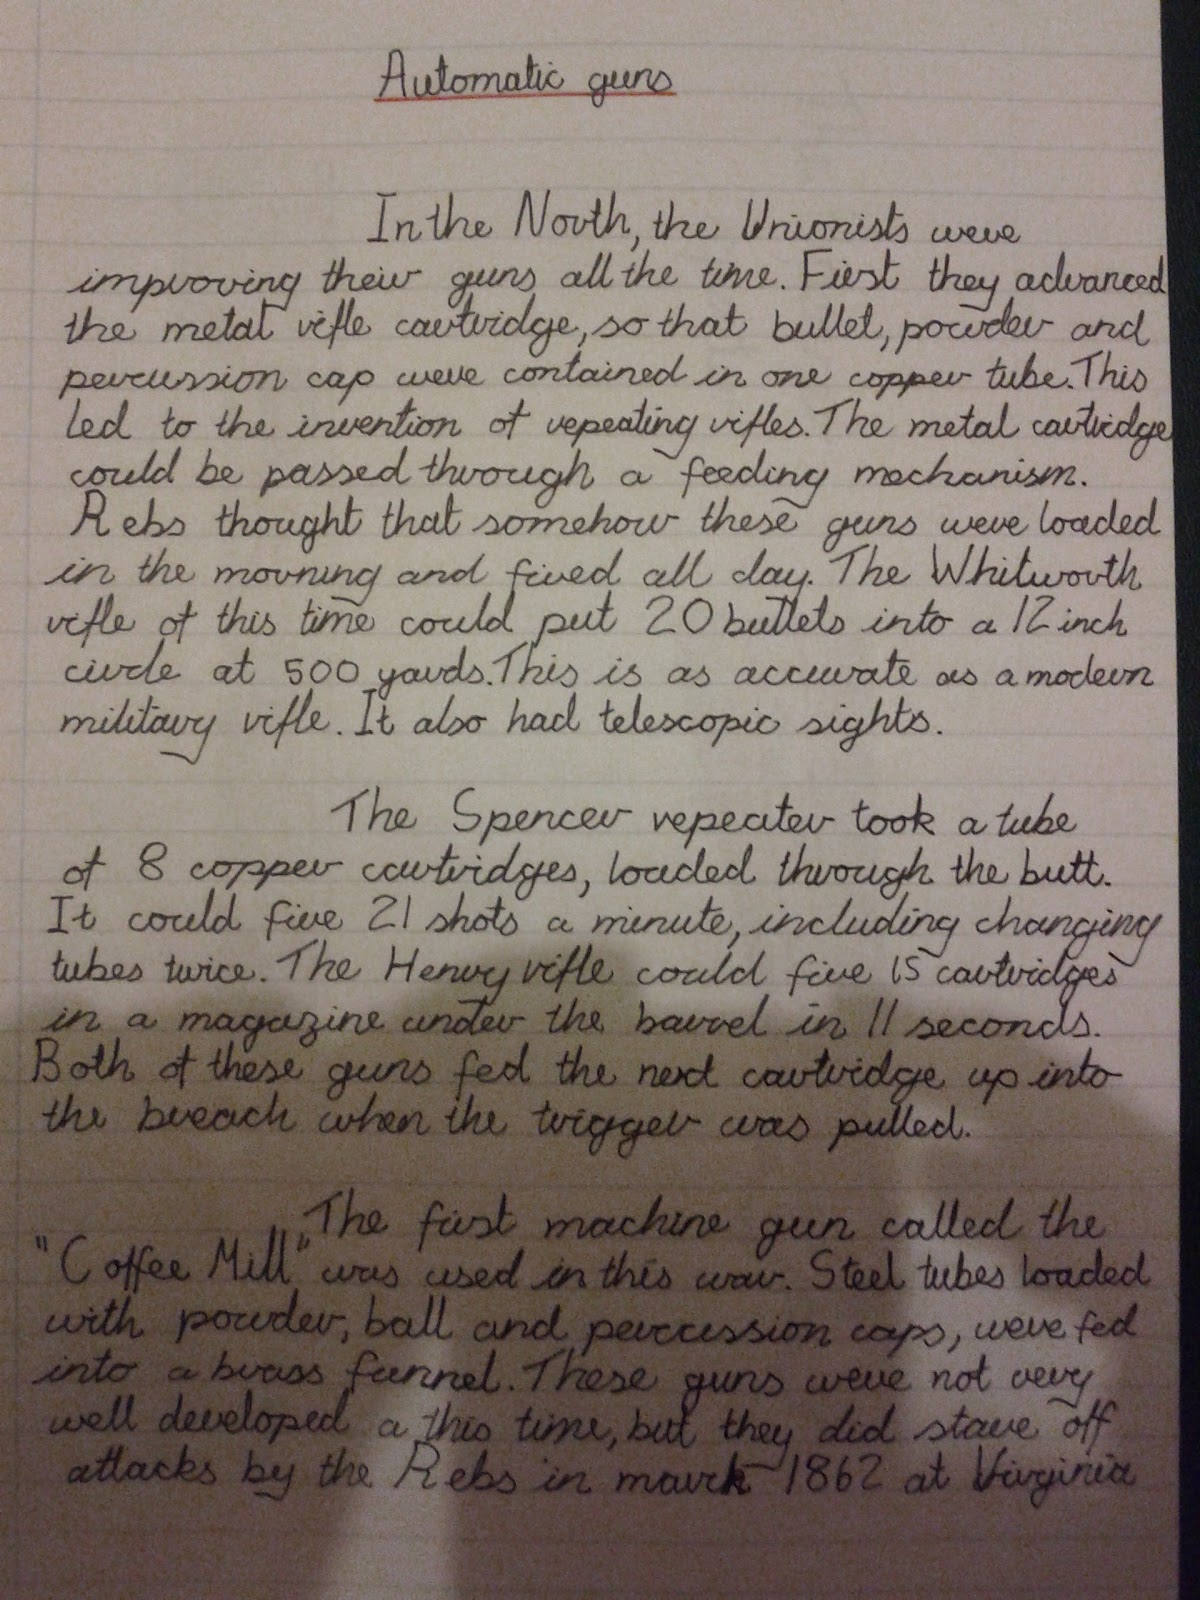 Automatic guns
In the North, the Unionists were
improving their guns all the time. First they advanced
the metal rifle cartridge, so that bullet, powder and
percussion cap were contained in one copper tube. This
led to the invention of repeating rifles. The metal cartridge
could be passed through a feeding mechanism.
Rebs thought that somehow these guns were loaded
in the morning and fired all day. The Whitworth
rifle of this time could put 20 bullets into a 12 inch
circle at 500 yards. This is as accurate as a modern
military rifle. It also had telescopic sights.
The Spencer repeater took a tube
of 8 copper cartridges, loaded through the butt.
It could fire 21 shots a minute, including changing
tubes twice. The Henry rifle could fire 15 cartridges
in a magazine under the barrel in 11 seconds.
Both of these guns fed the next cartridge up into
the breach when the trigger was pulled.
The first machine gun called the
"Coffee Mill" was used in this war. Steel tubes loaded
with powder, ball and percussion caps, were fed
into a brass funnel. These guns were not very
well developed a this time, but they did stave off
attacks by the Rebs in march 1862 at Virginia